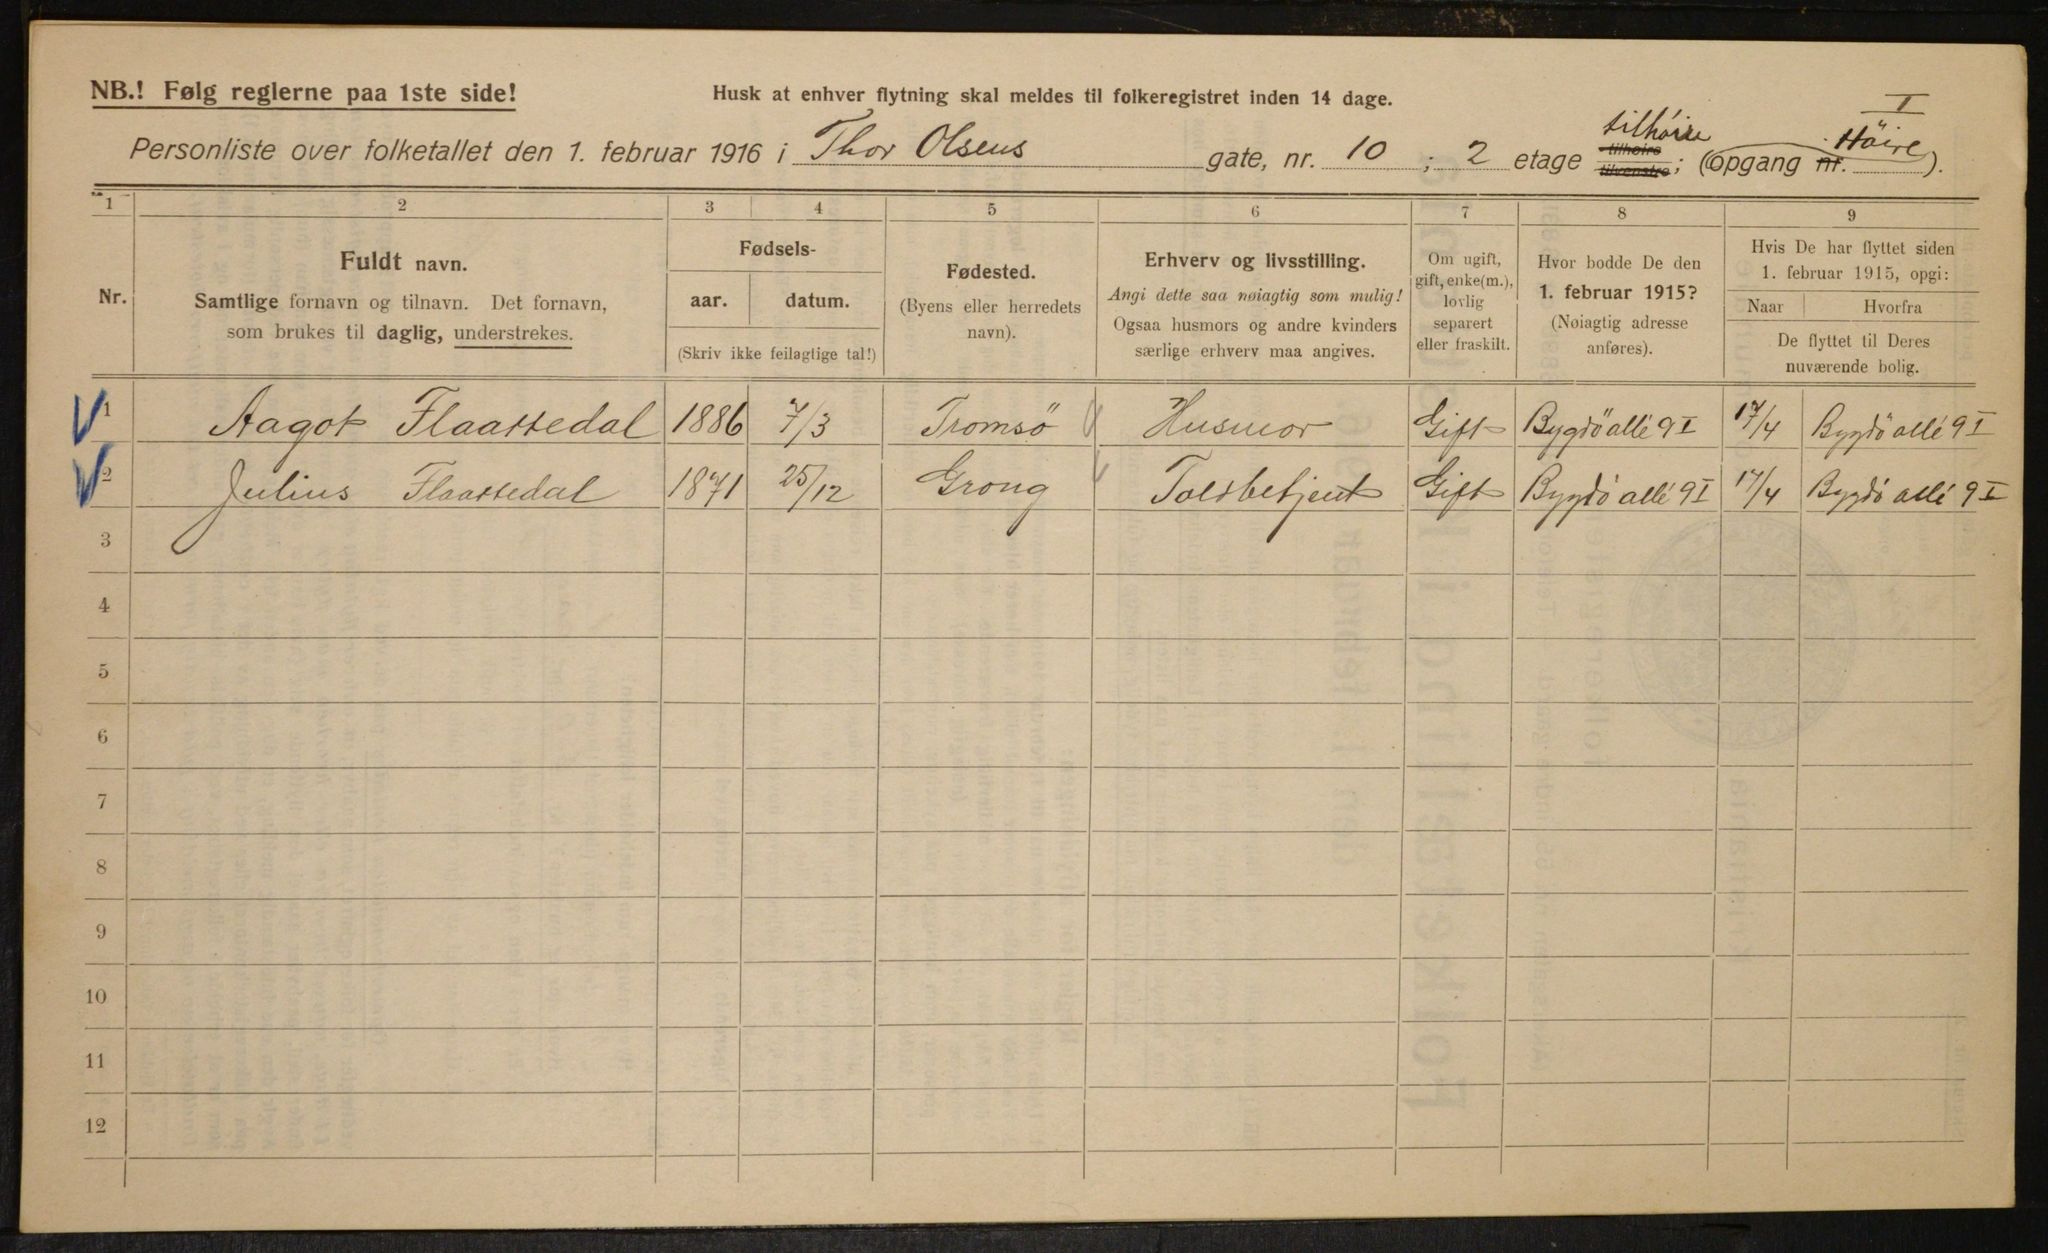 NB.! Følg reglerne paa 1ste side!
Husk at enhver flytning skal meldes til folkeregistret inden 14 dage.
I
tilhøire Höire
Personliste over folketallet den 1. februar 1916 i Thor Olsens gate, nr. 10 ; 2 etage tilhøire tilvenstre; (opgang nr. ).
1 2 3 4 5 6 7 8 9
Nr.
Fuldt navn.
Samtlige fornavn og tilnavn. Det fornavn,
som brukes til daglig, understrekes.
Fødsels-
aar. datum.
(Skriv ikke feilagtige tal!)
Fødested.
(Byens eller herredets
navn).
Erhverv og livsstilling.
Angi dette saa nøiagtig som mulig!
Ogsaa husmors og andre kvinders
særlige erhverv maa angives.
Om ugift,
gift, enke(m.),
lovlig
separert
eller fraskilt.
Hvor bodde De den
1. februar 1915?
(Nøiagtig adresse
anføres).
Hvis De har flyttet siden
1. februar 1915, opgi:
Naar Hvorfra
De flyttet til Deres
nuværende bolig.
1 Aagot Flaattedal 1886 7/3 Tromsö Husmor Gift Bygdö allé 9 I 17/4 Bygdö allé 9 I
2 Julius Flaattedal 1871 25/12 Grong Toldbetjent Gift Bygdö allé 9 I 17/4 Bygdö allé 9 I
3
4
5
6
7
8
9
10
11
12